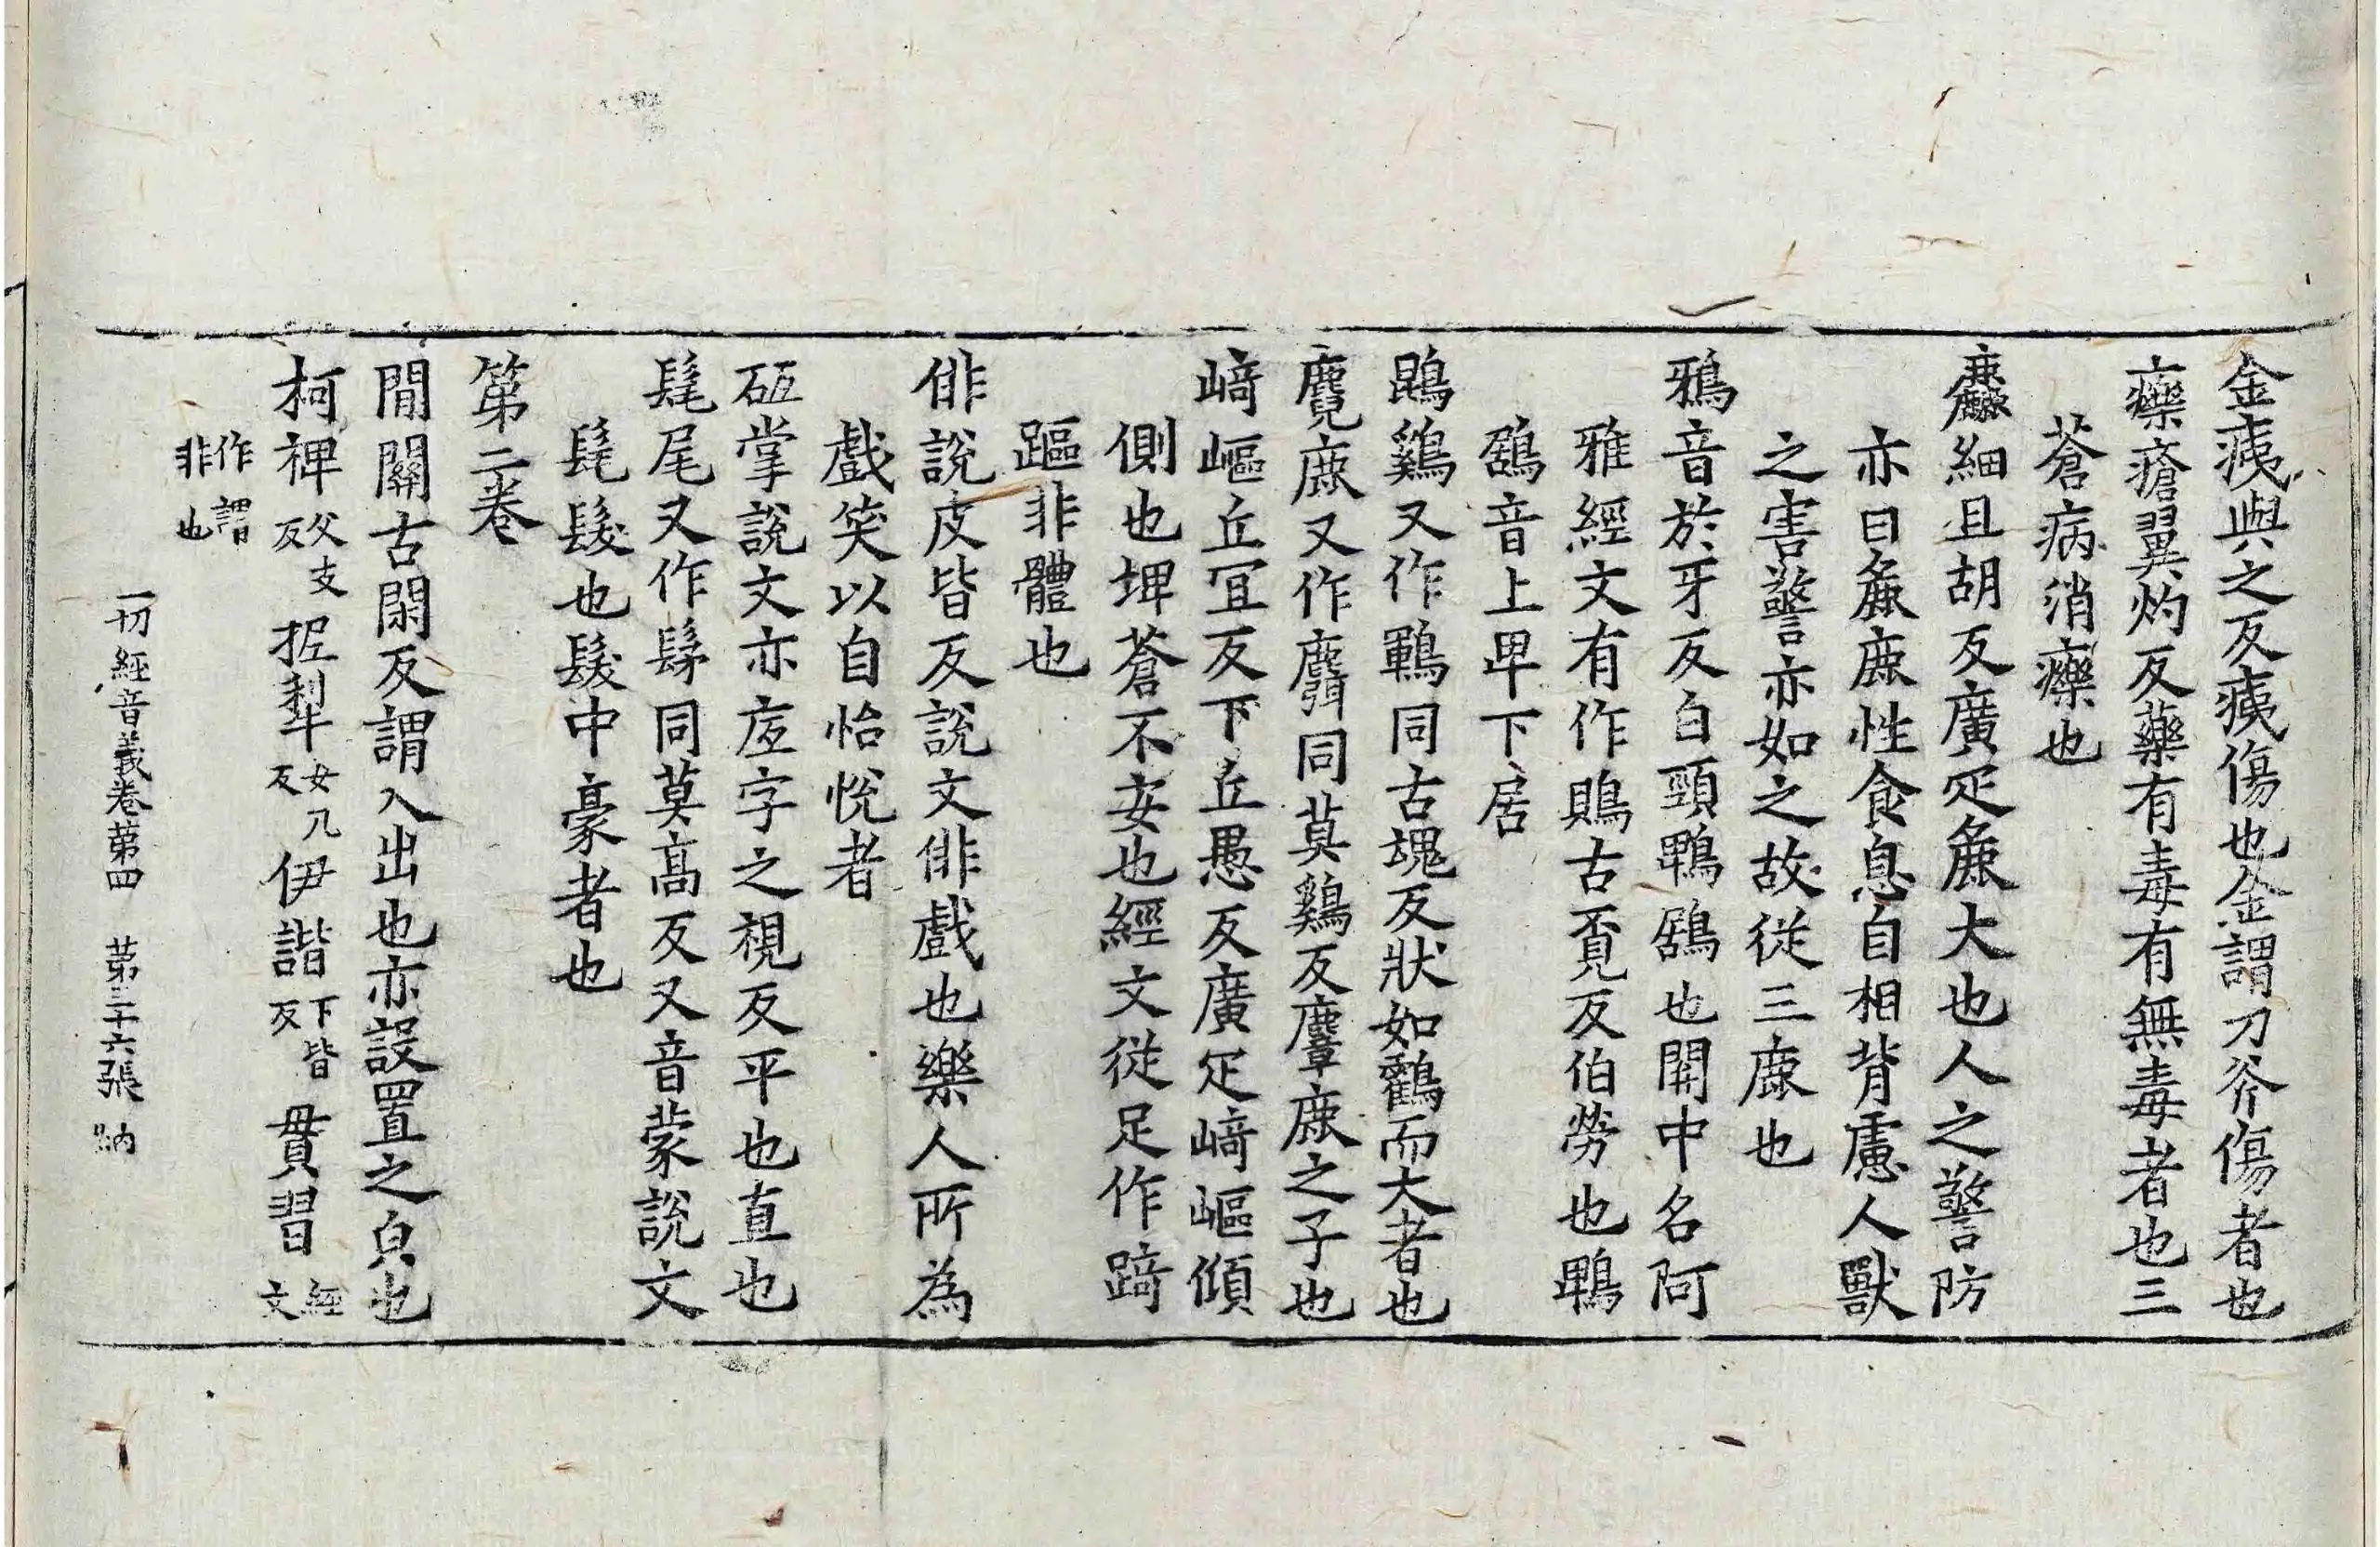 金痍與之反痍傷也金謂刀斧傷者也
癳瘡翼灼反藥有毒有無毒者也三
蒼病消癳也
麤細且胡反廣疋麁大也人之警防
亦曰麁鹿性食息自相背慮人獸
之害警亦如之故從三鹿也
鵶音於牙反白頸鵯鶋也關中名阿
雅經文有作鵙古覔反伯勞也鵯
鶋音上卑下居
鵾鷄又作鶤同古䰟反狀如鸛而大者也
麑鹿又作麛同莫鷄反麞鹿之子也
崎嶇丘冝反下丘愚反廣疋崎嶇傾
側也埤蒼不安也經文從足作踦
䠧非體也
俳說皮皆反說文俳戲也樂人所為
戲笑以自怡悅者
砥掌說文亦底字之視反平也直也
髦尾又作髳同莫髙反又音蒙說文
髦髮也髮中豪者也
第二卷
閒關古閑反謂入出也亦設置之皃也
柯裨父支反抳犁女几反伊諧下皆反貫習經文
作謂非也
一切經音義卷苐四 苐三十六張 納